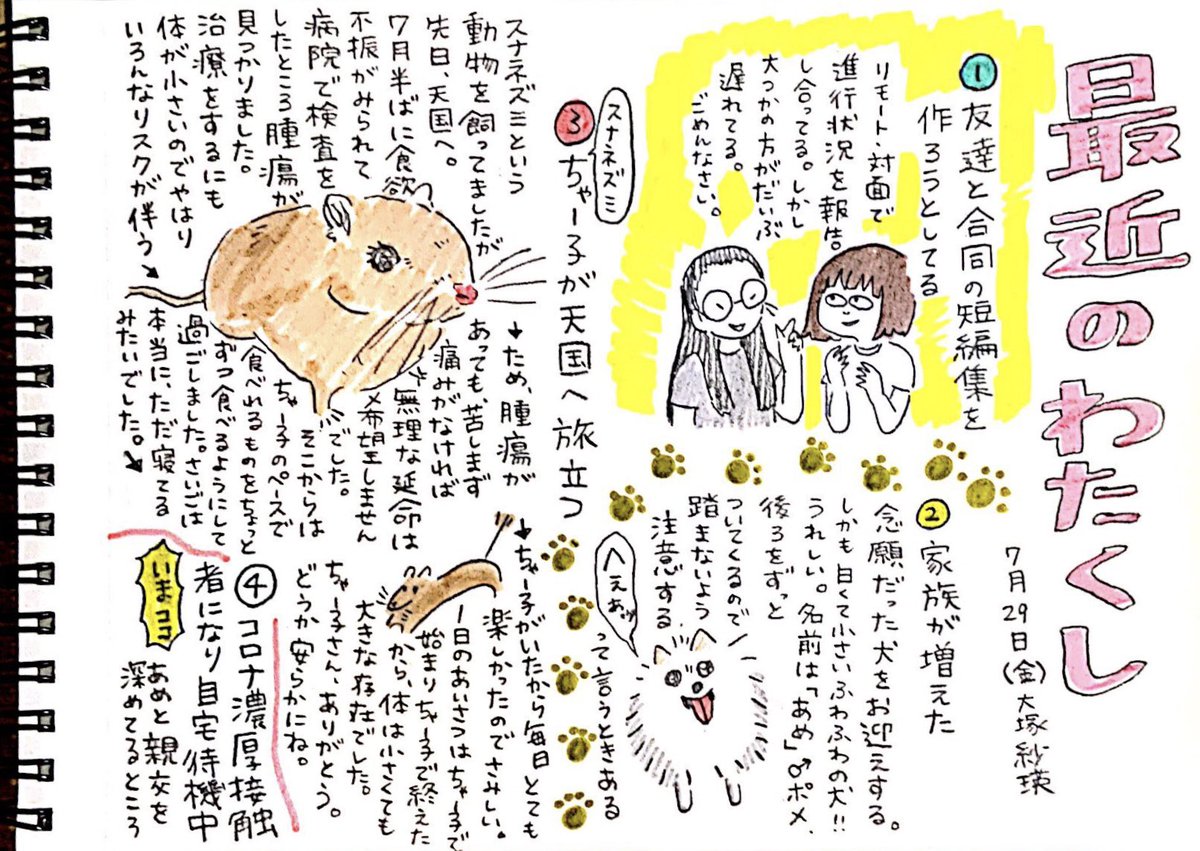 最近のわたくし
7月29日(金)大塚紗瑛
①友達と合同の短編集を
作ろうとしてる
リモート・対面で
進行状況を報告
し合ってる。しかし
大つかの方がだいぶ
遅れてる。
ごめんなさい。
②家族が増えた
念願だった犬をお迎えする。
しかも白くて小さいふわふわの犬!!
うれしい。名前は「あめ」♂ポメ、
後ろをずっと
ついてくるので
踏まないよう
注意する
へぇあッ
って言うときある
③ちゃー子が天国へ旅立つ
スナネズミ
スナネズミという
動物を飼ってましたが
先日、天国へ。
7月半ばに食欲
不振がみられて
病院で検査を
したところ腫瘍が
見つかりました。
治療をするにも
体が小さいのでやはり
いろんなリスクが伴う
ため、腫瘍が
あっても、苦しまず
痛みがなければ
無理な延命は
希望しません
でした。
そこからは
ちゃー子のペースで
食べれるものをちょっと
ずつ食べるようにして
過ごしました。さいごは
本当に、ただ寝てる
みたいでした。
ちゃー子がいたから毎日とても
楽しかったのでさみしい。
1日のあいさつはちゃー子で
始まりちゃー子で終えた
から、体は小さくても
大きな存在でした。
ちゃー子さん、ありがとう。
どうか安らかにね。
④コロナ濃厚接触
者になり自宅待機中
いまココ
あめと親交を
深めてるところ